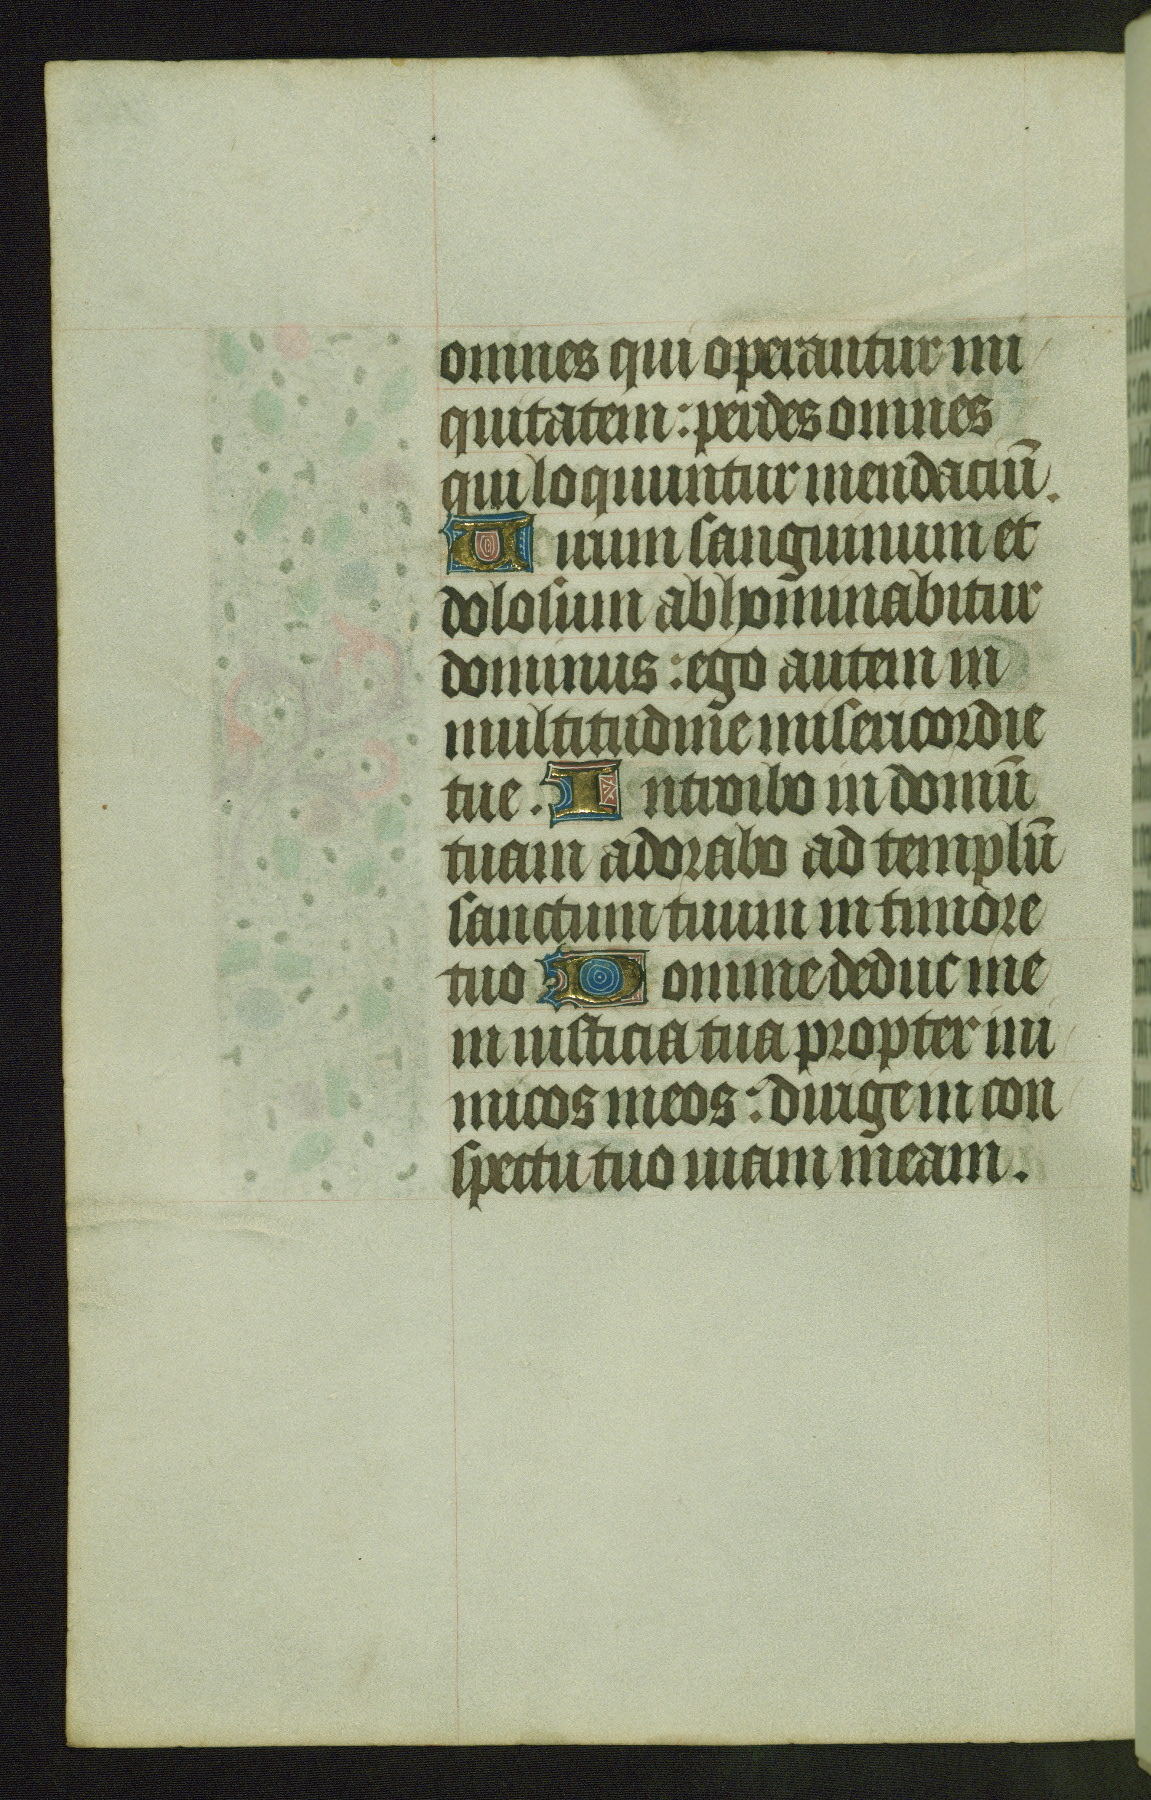 omnes qui operantur ini
quitatem : perdes omnes
qui loquuntur mendaciū.
Uirum sanguinum et
dolosum abhominabitur
dominus : ego autem in
multitudine misericordie
tue. Introibo in domū
tuam adorabo ad templū
sanctum tuum in timore
tuo Domine deduc me
in iusticia tua propter ini
micos meos : dirige in con
spectu tuo uiam meam.